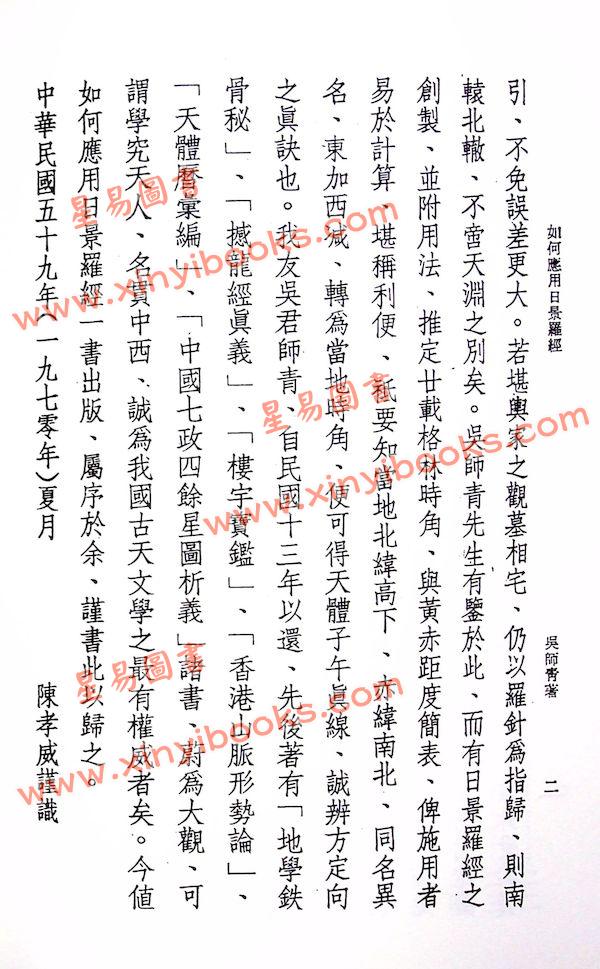 如何應用日景羅經
吳師靑著
二
引、不免誤差更大。若堪輿家之觀墓相宅、仍以羅針爲指歸、則南
轅北轍、不啻天淵之別矣。吳師靑先生有鑒於此、而有日景羅經之
創製、並附用法、推定廿載格林時角、與黃赤距度簡表、俾施用者
易於計算、堪稱利便、祇要知當地北緯高下、赤緯南北、同名異
名、東加西減、轉爲當地時角、便可得天體子午眞線、誠辨方定向
之眞訣也。我友吳君師靑、自民國十三年以還、先後著有「地學鉄
骨秘」、「撼龍經眞義」、「樓宇寶鑑」、「香港山脈形勢論」、
「天體曆彙編」、「中國七政四餘星圖析義」諸書、蔚爲大觀、可
謂學究天人、名實中西、誠爲我國古天文學之最有權威者矣。今値
如何應用日景羅經一書出版、屬序於余、謹書此以歸之。
中華民國五十九年(一九七零年)夏月
陳孝威謹識
星易圖書
www.xinyibooks.com
星易圖書
www.xinyibooks.com
星易圖書
www.xinyibooks.com